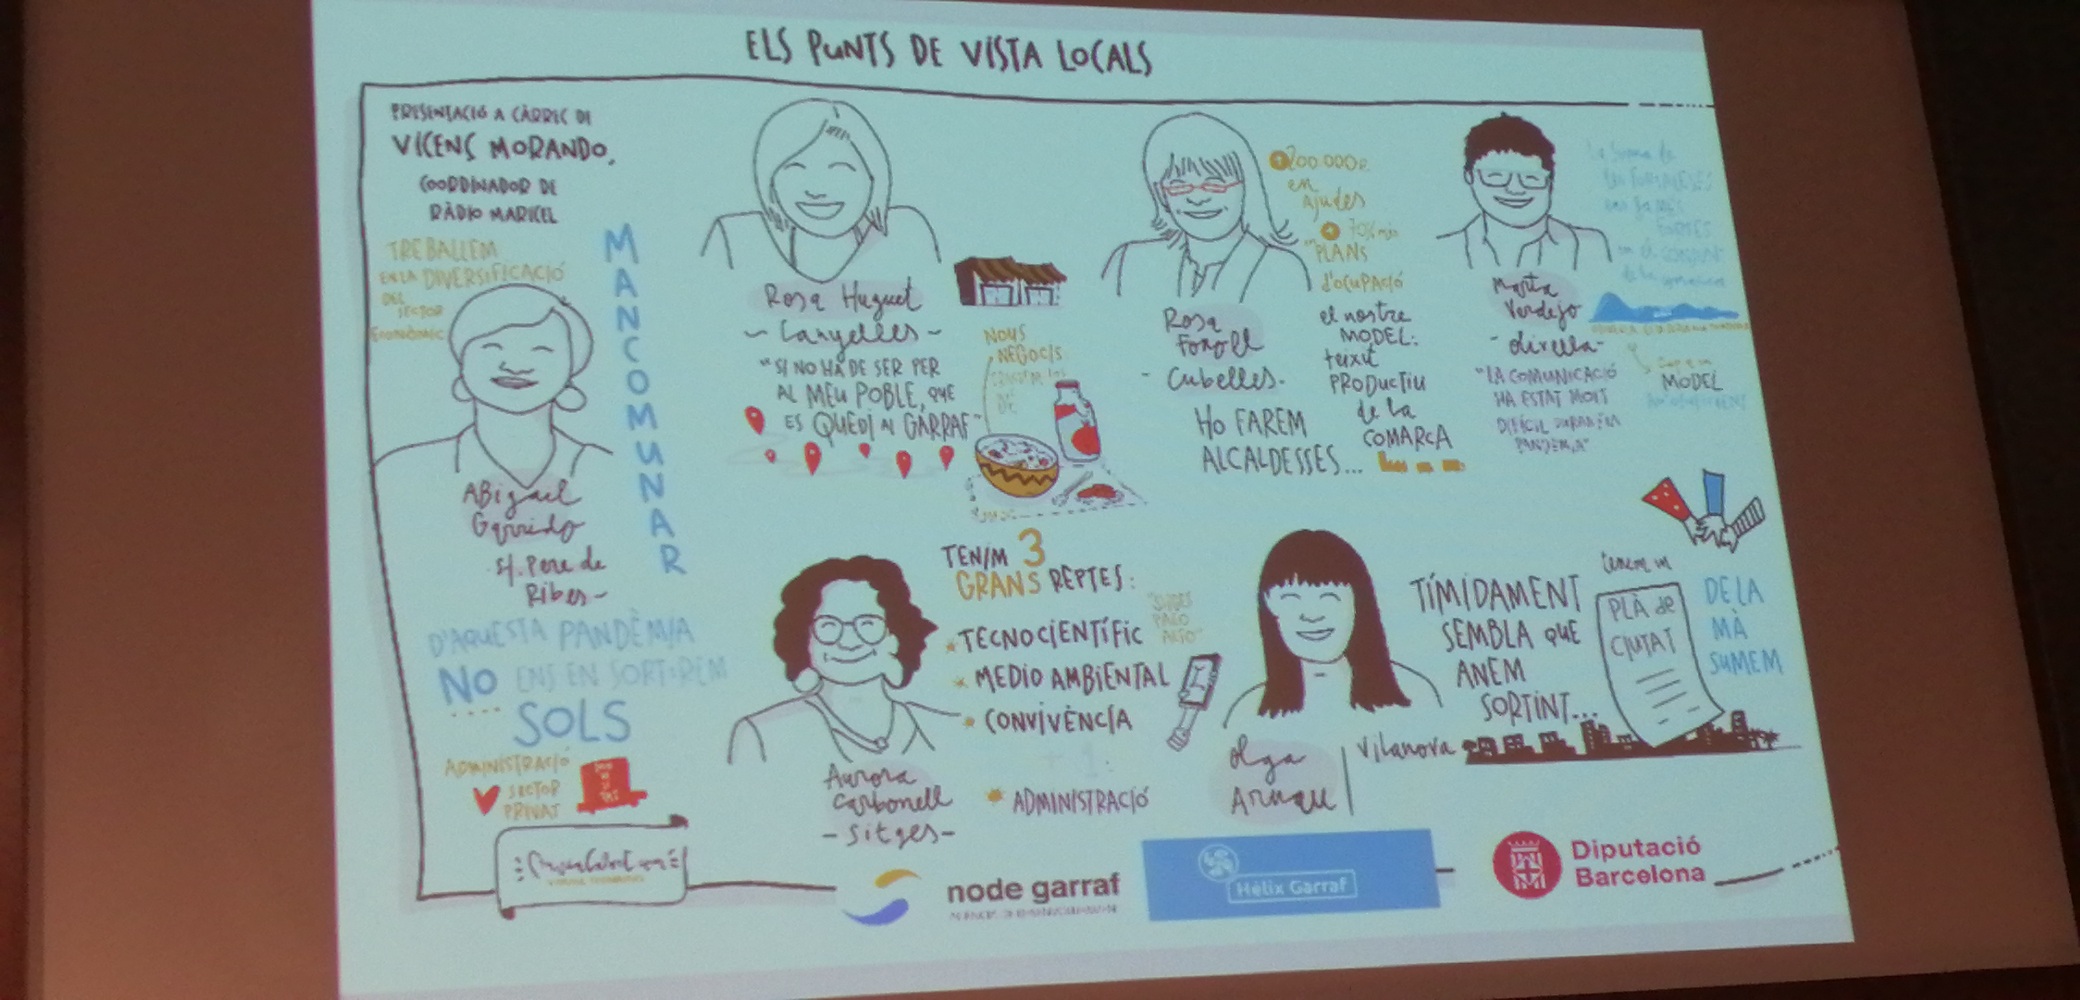 ELS PUNTS DE VISTA LOCALS
PRESENTACIÓ A CÀRREC DE
VICENÇ MORANDO,
COORDINADOR DE
RÀDIO MARICEL
TREBALLEM
EN LA DIVERSIFICACIÓ
DEL
SECTOR
ECONÒMIC
MANCOMUNAR
ABigail
Garrido
St. Pere de
Ribes-
D'AQUESTA PANDÈMIA
NO ENS EN SORTIREM
SOLS
ADMINISTRACIÓ
SECTOR
PRIVAT
Rosa Huguet
- Canyelles -
"SI NO HA DE SER PER
AL MEU POBLE, QUE
ES QUEDI AL GARRAF"
NOUS
NEGOCIS
DE
Rosa
Fonoll
- Cubelles.
HO FAREM
ALCALDESSES...
+200.000€
en
AJudes
+
PLANS
d'OCUPACIÓ
el nostre
MODEL:
teixit
PRODUCTIU
de la
COMARCA
Marta
Verdejo
- olivella -
"LA COMUNICACIÓ
HA ESTAT MOLT
DIFÍCIL DURANT LA
PANDÈMIA"
La suma de
les FORTALESES
FORTES
MODEL
Aurora
Carbonell
- Sitges -
TENIM 3
GRANS REPTES:
* TECNOCIENTÍFIC
* MEDIO AMBIENTAL
* CONVIVÈNCIA
+ 1:
* ADMINISTRACIÓ
Olga
Arnau
Vilanova
TÍMIDAMENT
SEMBLA QUE
ANEM
SORTINT...
tenim un
PLÀ de
CIUTAT
DE LA
MÀ
SUMEM
node garraf
Hèlix Garraf
Diputació
Barcelona